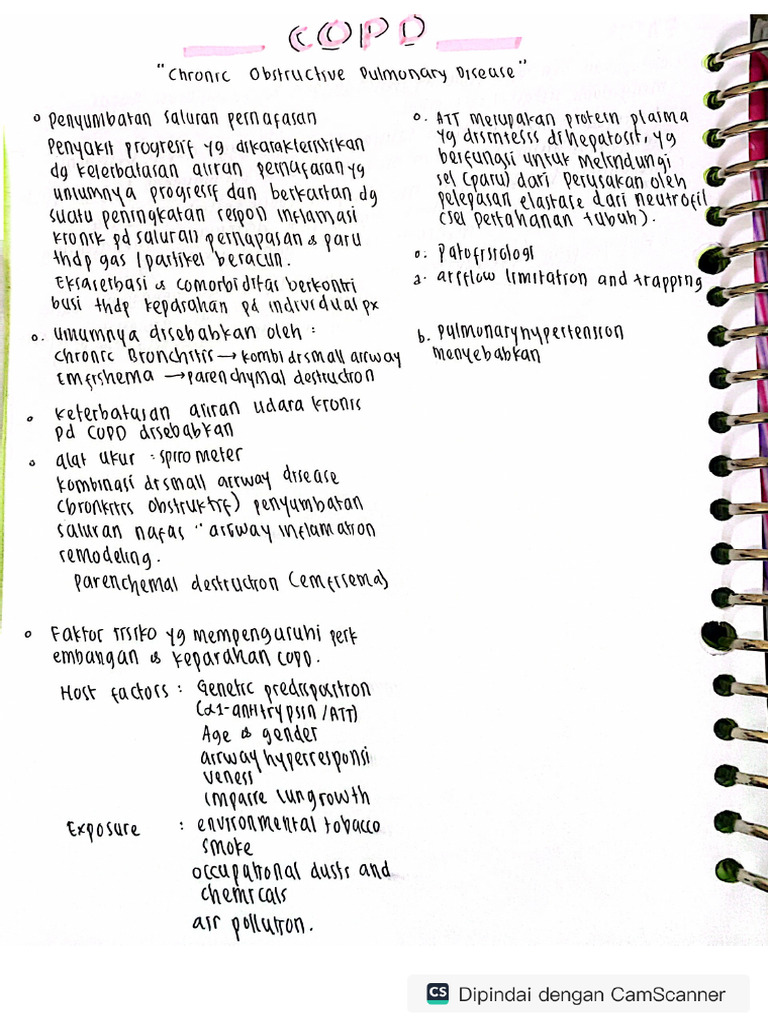 COPD
"Chronic Obstructive Pulmonary Disease"
Penyumbatan saluran pernafasan
Penyakit progresif yg dikarakteristikan
dg keterbatasan aliran pernafasan yg
umumnya progresif dan berkaitan dg
suatu peningkatan respon inflamasi
kronik pd saluran pernapasan & paru
thdp gas / partikel beracun.
Eksaserbasi & comorbiditas berkontri
busi thdp keparahan pd individual px
o. umumnya disebabkan oleh :
chronic Bronchitis → kombi dr small airway
Emfishema → parenchymal destruction
keterbatasan aliran udara kronis
pd COPD disebabkan
alat ukur : spirometer
kombinasi dr small airway disease
(bronkitis obstruktif) penyumbatan
saluran nafas " airway inflamation
remodeling.
Parenchemal destruction (emfisema)
Faktor risiko yg mempengaruhi perk
embangan & keparahan COPD.
Host factors : Genetic predisposition
(α1-antitrypsin / ATT)
Age & gender
airway hyperresponsi
veness
Impaire lungrowth
Exposure : environmental tobacco
smoke
occupational dusts and
chemicals
air pollution.
o. ATT merupakan protein plasma
yg disintesis di hepatosit, yg
berfungsi untuk melindungi
sel (paru) dari perusakan oleh
pelepasan elastase dari neutrofil
(sel pertahanan tubuh).
o. patofisiologi
a. airflow limitation and trapping
b. pulmonary hypertension
menyebabkan
CS Dipindai dengan CamScanner